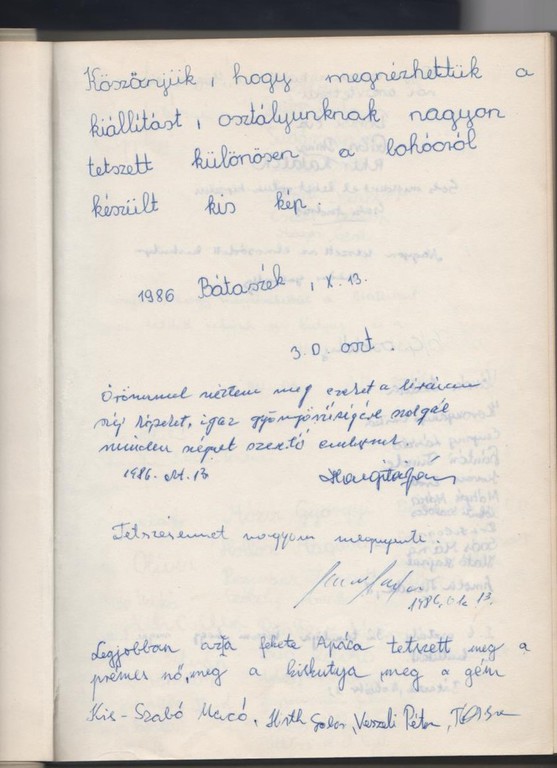 Köszönjük, hogy megnézhettük a
kiállítást, osztályunknak nagyon
tetszett különösen a bohócról
készült kis kép.
1986 Bátaszék, X. 13.
3. D. oszt.
Örömmel néztem meg ezeket a
szép képeket, igaz gyönyörűségére szolgál
minden népet szerető embernek
1986. 13
Tetszésemet nagyon megnyerte.
1986. 13.
Legjobban az a fekete Apáca tetszett meg a
prémes nő, meg a kiskutya meg a gém
Kis-Szabó Marcó, Hirth Gabor, Veszeli Péter,